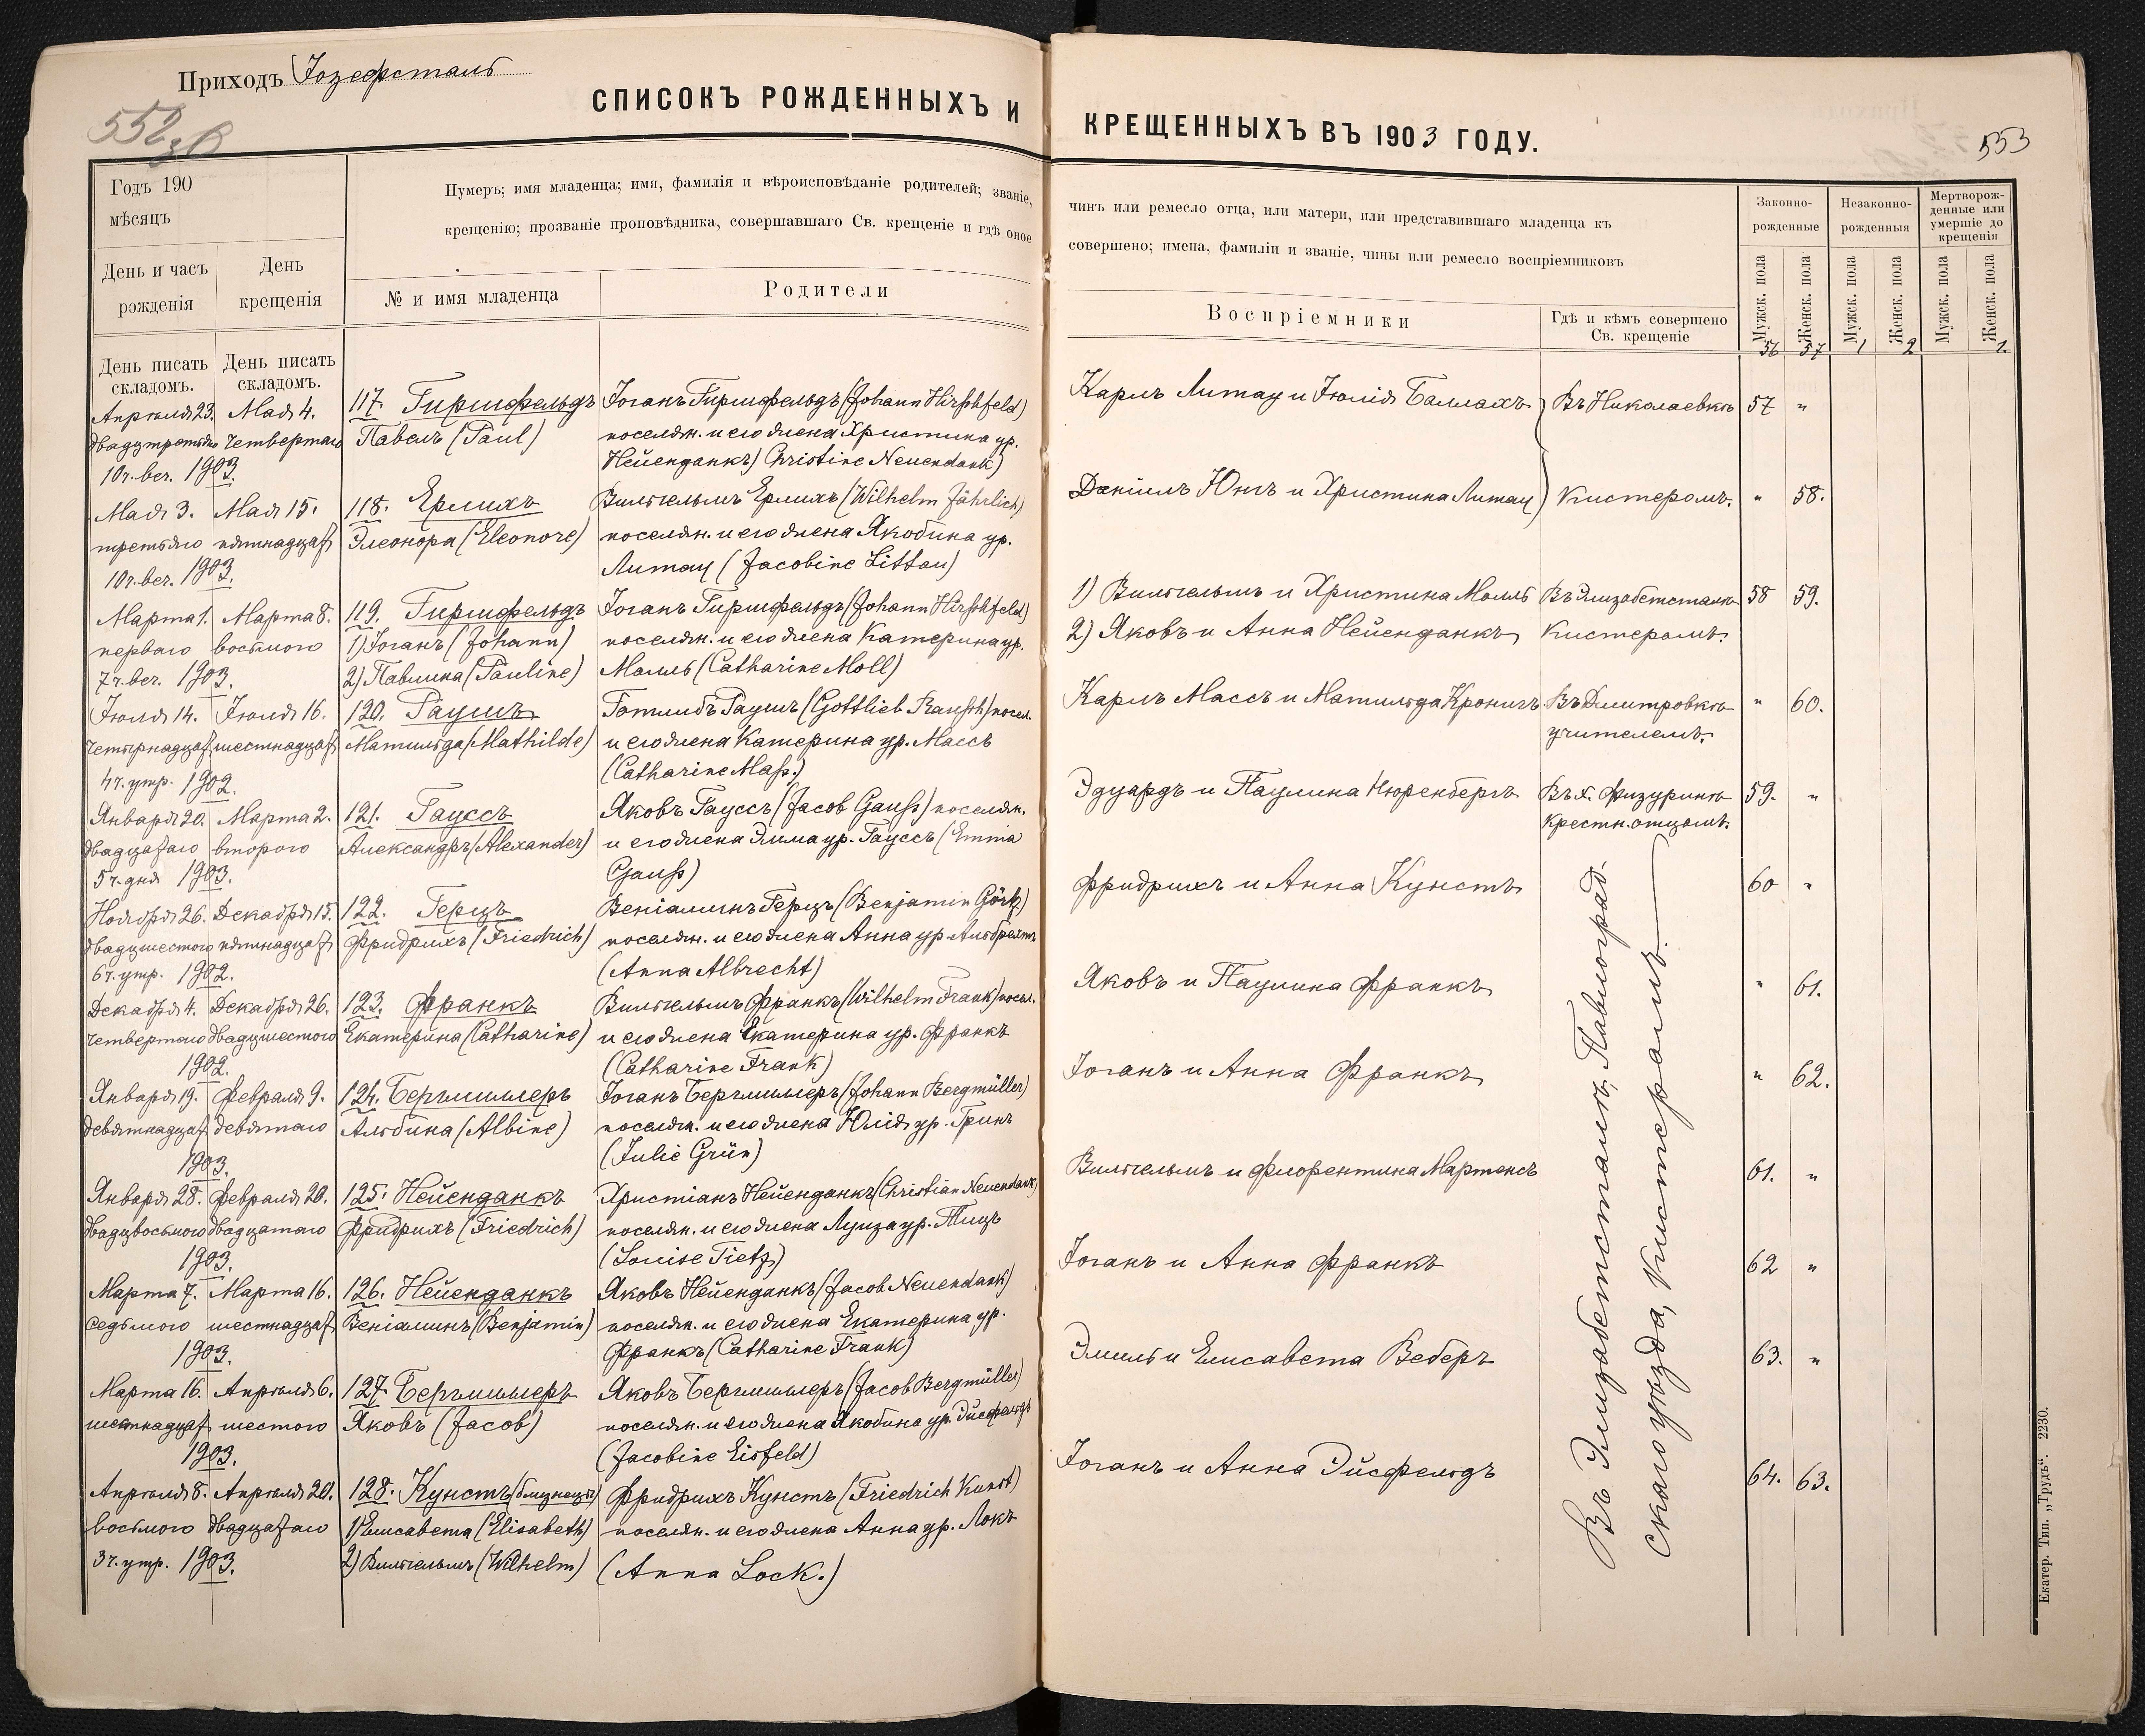 Приходъ Іозефсталь
552
зв
СПИСОКЪ РОЖДЕННЫХЪ И КРЕЩЕННЫХЪ ВЪ 1903 ГОДУ.
553
Годъ 190
мѣсяцъ
День и часъ рожденія
День крещенія
Нумеръ; имя младенца; имя, фамилія и вѣроисповѣданіе родителей; званіе, чинъ или ремесло отца, или матери, или представившаго младенца къ
крещенію; прозваніе проповѣдника, совершавшаго Св. крещеніе и гдѣ оное совершено; имена, фамиліи и званіе, чины или ремесло воспріемниковъ
№ и имя младенца
Родители
Воспріемники
Гдѣ и кѣмъ совершено
Св. крещеніе
Законно-
рожденные
Незаконно-
рожденныя
Мертворож-
денные или
умершіе до
крещенія
Мужск. пола
Женск. пола
Мужск. пола
Женск. пола
Мужск. пола
Женск. пола
56 57 1 2 1.
День писать складомъ.
День писать складомъ.
Апрѣля 23. Мая 4. 117. Гиршфельдъ Іоганъ Гиршфельдъ (Johann Hirschfeld) Карлъ Литау и Юлія Баллахъ Въ Николаевкѣ 57 "
двадцтретьяго четвертаго Павелъ (Paul) поселян. и его жена Христина ур.
10 ч. веч. 1903. Нейенданкъ) Christine Neuendank)
Мая 3. Мая 15. 118. Ерлихъ Вильгельмъ Ерлихъ (Wilhelm Jährlich) Даніилъ Юнгъ и Христина Литау Кистеромъ. " 58.
третьяго пятнадцат Элеонора (Eleonore) поселян. и его жена Якобина ур.
10 ч. веч. 1903. Литау (Jacobine Littau)
Марта 1. Марта 8. 119. Гиршфельдъ Іоганъ Гиршфельдъ (Johann Hirschfeld) 1) Вильгельмъ и Христина Молль Въ Элизабетсталѣ 58 59.
перваго восьмого 1) Іоганъ (Johann) поселян. и его жена Катерина ур. 2) Яковъ и Анна Нейенданкъ Кистеромъ.
7 ч. веч. 1903. 2) Павлина (Pauline) Молль (Catharine Moll)
Іюля 14. Іюля 16. 120. Раушъ Готлибъ Раушъ (Gottlieb Rausch) посел. Карлъ Массъ и Матильда Кронигъ Въ Дмитровкѣ " 60.
четырнадцат шестнадцат Матильда (Mathilde) и его жена Катерина ур. Массъ учителемъ.
4 ч. утр. 1902. (Catharine Maß.)
Января 20. Марта 2. 121. Гауссъ Яковъ Гауссъ (Jacob Gauß) поселян. Эдуардъ и Паулина Нюренбергъ Въ х. Физуринъ 59. "
двадцатаго второго Александръ (Alexander) и его жена Эмма ур. Гауссъ (Emma Крестн. отцомъ.
5 ч. дня 1903. Gauß)
Ноября 26. Декабря 15. 122. Герцъ Веніаминъ Герцъ (Benjamin Görtz) Фридрихъ и Анна Кунстъ 60 "
двадцшестого пятнадцат Фридрихъ (Friedrich) поселян. и его жена Анна ур. Альбрехтъ
6 ч. утр. 1902. (Anna Albrecht)
Декабря 4. Декабря 26. 123. Франкъ Вильгельмъ Франкъ (Wilhelm Frank) посел. Яковъ и Паулина Франкъ " 61.
четвертаго двадцшестого Екатерина (Catharine) и его жена Екатерина ур. Франкъ
1902. (Catharine Frank)
Января 19. Февраля 9. 124. Бергмиллеръ Іоганъ Бергмиллеръ (Johann Bergmüller) Іоганъ и Анна Франкъ " 62.
девятнадцат девятаго Альбина (Albine) поселян. и его жена Юлія ур. Гринъ
1903. (Julie Grün)
Января 28. Февраля 20. 125. Нейенданкъ Христіанъ Нейенданкъ (Christian Neuendank) Вильгельмъ и Флорентина Мартенсъ 61. "
двадцвосьмого двадцатаго Фридрихъ (Friedrich) поселян. и его жена Луиза ур. Тицъ
1903. (Louise Tietz)
Марта 7. Марта 16. 126. Нейенданкъ Яковъ Нейенданкъ (Jacob Neuendank) Іоганъ и Анна Франкъ 62 "
седьмого шестнадцат Веніаминъ (Benjamin) поселян. и его жена Екатерина ур.
1903. Франкъ (Catharine Frank)
Марта 16. Апрѣля 6. 127. Бергмиллеръ Яковъ Бергмиллеръ (Jacob Bergmüller) Эмиль и Елисавета Веберъ 63. "
шестнадцат шестого Яковъ (Jacob) поселян. и его жена Якобина ур. Эйсфельдъ
1903. (Jacobine Eisfeld)
Апрѣля 8. Апрѣля 20. 128. Кунстъ (близнецы) Фридрихъ Кунстъ (Friedrich Kunst) Іоганъ и Анна Эйсфельдъ 64. 63.
восьмого двадцатаго 1) Елисавета (Elisabeth) поселян. и его жена Анна ур. Локъ
3 ч. утр. 1903. 2) Вильгельмъ (Wilhelm) (Anna Lock.)
Въ Элизабетсталѣ, Павлоград-
скаго уѣзда, Кистеромъ.
Екатер. Тип. „Трудъ“. 2230.